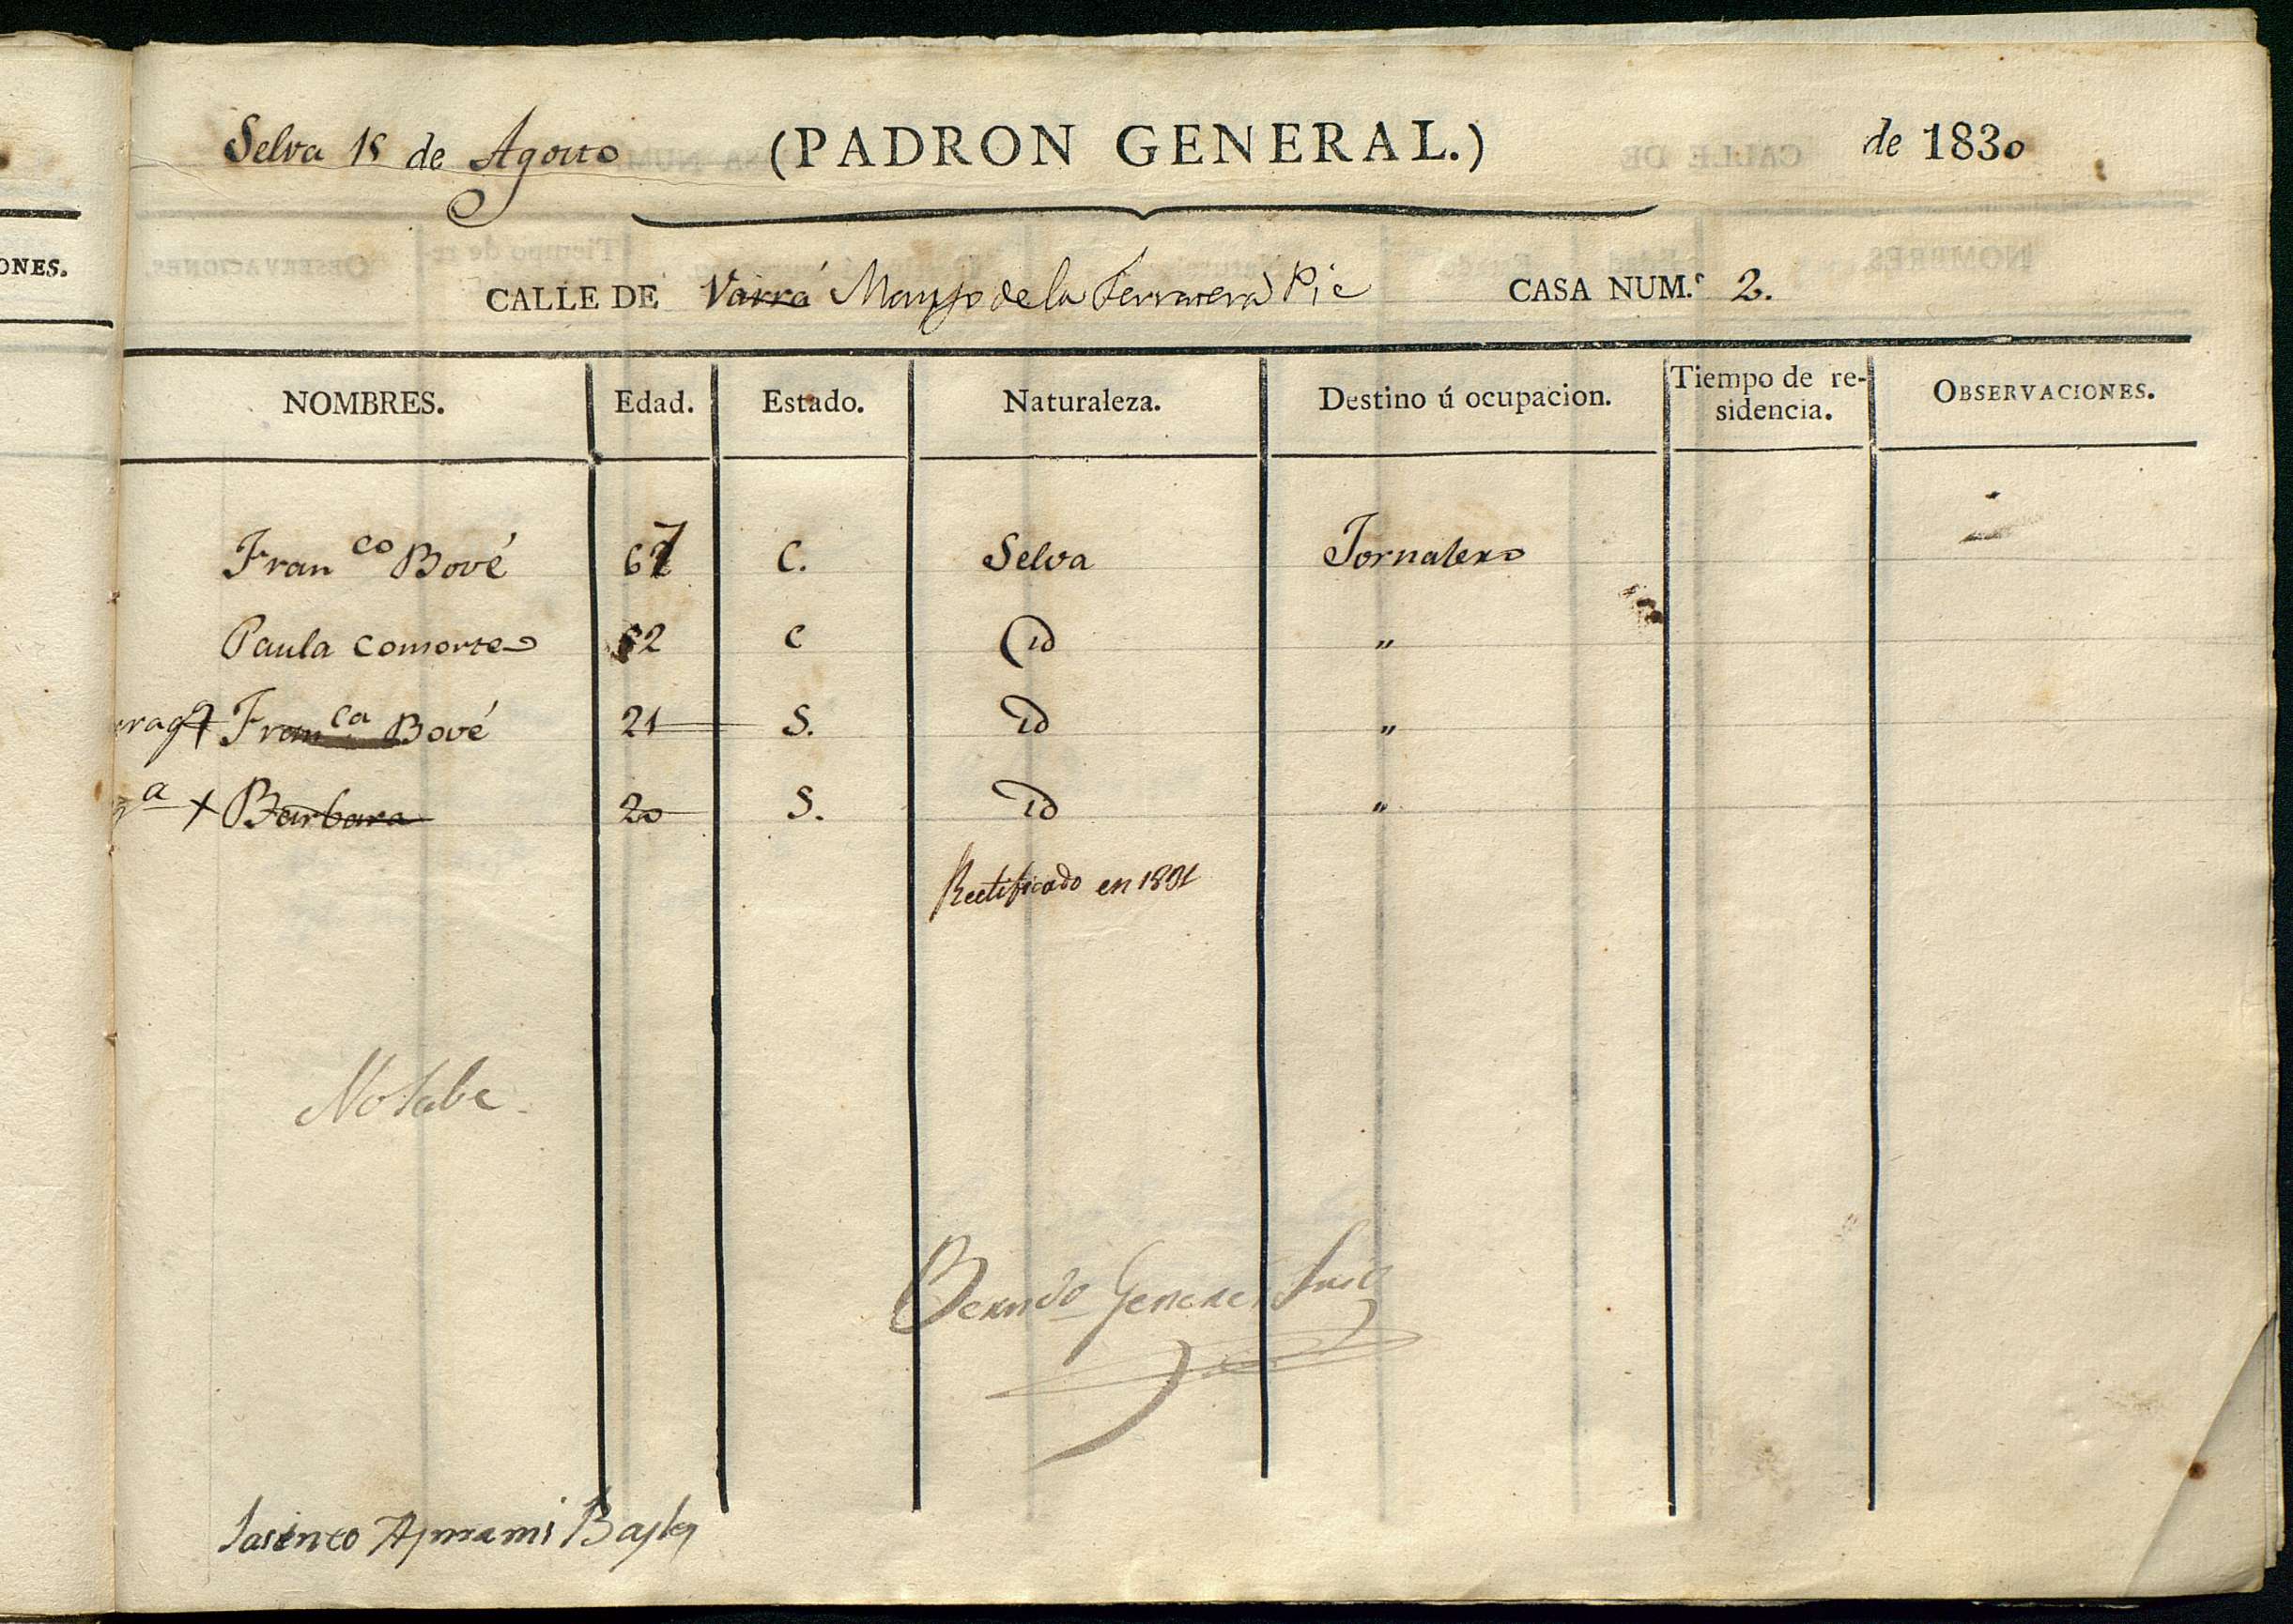 Selva 18 de Agosto (PADRON GENERAL.) de 1830
ONES.
CALLE DE Varrá de la Pie CASA NUM.º 2.
NOMBRES. Edad. Estado. Naturaleza. Destino ú ocupacion. Tiempo de re-sidencia. OBSERVACIONES.
Fran.co Bové 67 C. Selva Jornalero
Paula consorte 62 C id "
Fran.ca Bové 21 S. id "
a + Barbara 20 S. id "
Rectificado en 1831
No sabe
Bern.do Gener